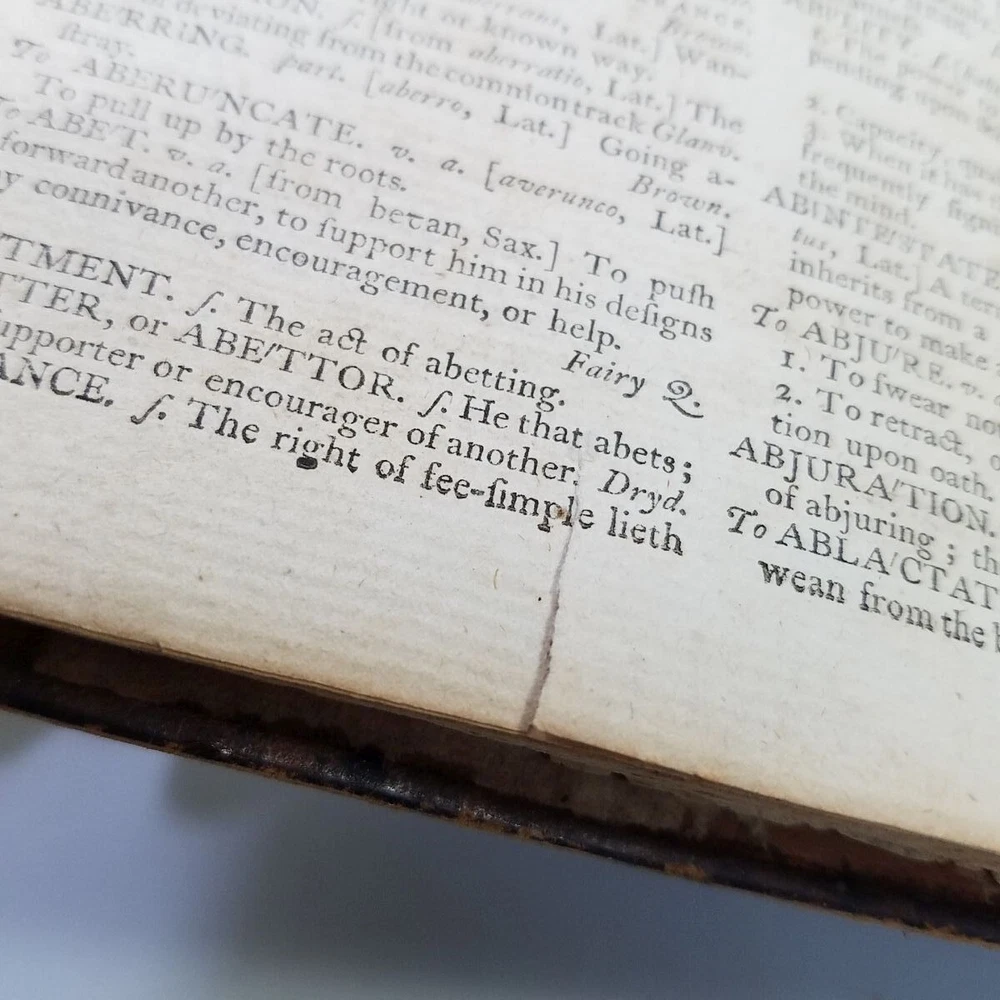 ERRING. part. [aberro, Lat.] Going a-
ſtray. Brown.
To ABERU'NCATE. v. a. [averunco, Lat.]
To pull up by the roots.
To ABE'T. v. a. [from betan, Sax.] To puſh
forward another, to ſupport him in his deſigns
y connivance, encouragement, or help.
Fairy Q.
TMENT. ſ. The act of abetting.
TTER, or ABE'TTOR. ſ. He that abets;
upporter or encourager of another. Dryd.
ANCE. ſ. The right of fee-ſimple lieth
2. Capacity,
3. When it has
frequently
the mind.
ABINTE'STATE
tus, Lat.] A ter
inherits from a
power to make
To ABJU'RE. v.
1. To ſwear no
2. To retract,
tion upon oath.
ABJURA'TION.
of abjuring; th
To ABLA'CTAT
wean from the b